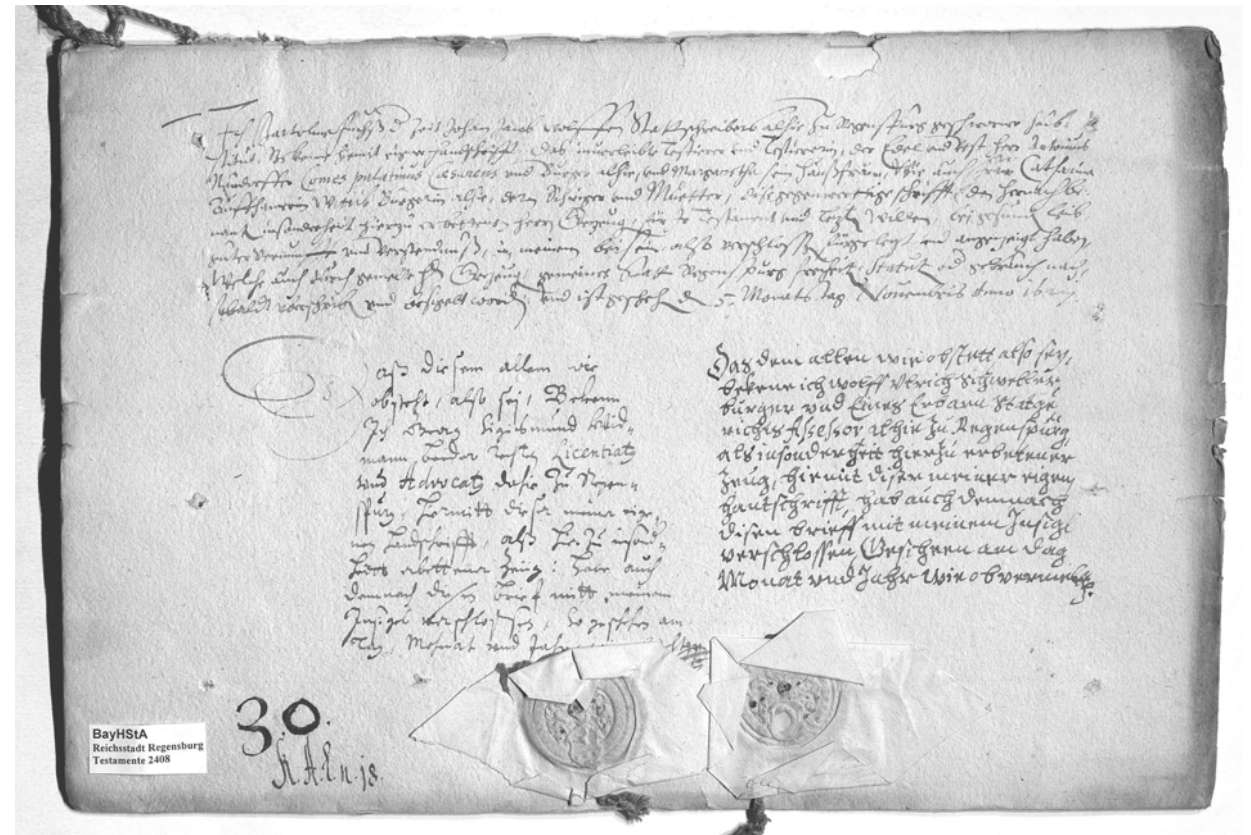 Ich Bartolme fuchß d Zeit Johan Jacob Wolffen Stattschreibers alhie zu Regenspurg geschworner
bekenne hiemit eigner handtschrifft, das inuerleibte Testierer und Testiererin, der Edel und Vest herr
Comes palatinus Caesareus und Burger alhie, und Margaretha sein haußfrau, Wie auch frau Catharina
Wittib Burgerin alhie, dern Schwiger und Muetter, dise gegenwertige schrifft, den hernach be-
nant insonderheit hierzu erbettenen herrn Gezeug, für Ir Testament und letzten Willen, bei gesund leib
guter vernunfft und verstendnuß, in meinem bei sein, also verschlossen fürgelegt und angezeigt haben,
Welche auch durch gemelte Gezeug, gemeiner Statt Regenspurg freiheit, Statut od gebrauch nach,
alsbaldt unterschriben und besigelt worden, und ist geschehen d 5. Monats tag Nouembris Anno
Daß disem allem wie
obsteht, also sej, Bekenn
Ich Georg Sigismund Wid-
mann beeder rechten Licentiatg
und Advocatg dahie zu Regen-
spurg, hiermitt diser meiner eige-
nen handschrifft, alß hierzu insond-
heit erbettener Zeug: habe auch
demnach disen brief mitt meinem
Insigel verschlossen, so geschehen am
Tag, Monat und Jahr
Das dem allen wie obstett also sey,
bekene ich wolff Vlrich Schweller
burger vnd Eines Erbarn Statge
richts Assessor alhie zu Regenspurg,
als insonderheit hierzu erbetener
zeug, hiemit diser meiner eigen
hantschrifft, hab auch demnach
disen brieff mit meinem Insigl
verschlossen, Gescheen am dag
Monat vnd Jahr wie ob vermelt
30.
BayHStA
Reichsstadt Regensburg
Testamente 2408